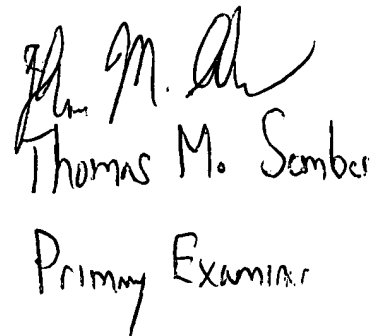 Thomas M. Sember
Primary Examiner